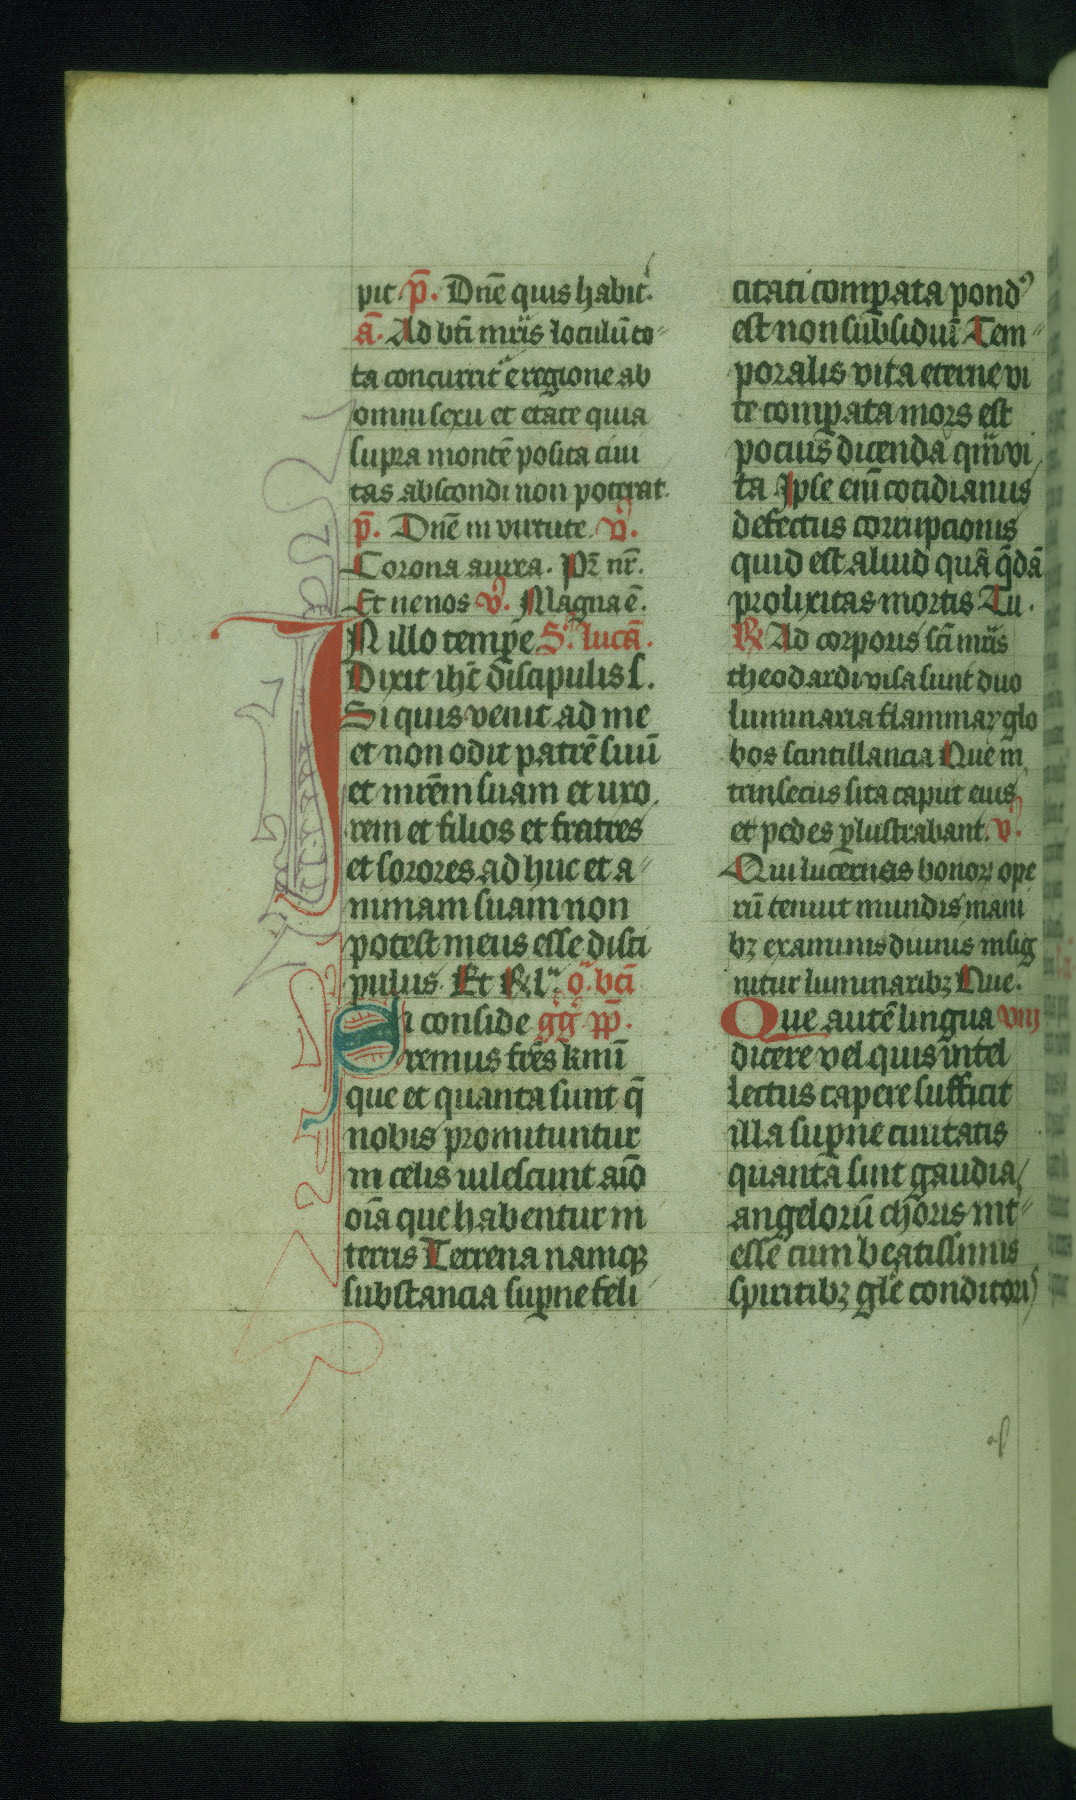 pit p̄. Dn̄e quis habit.
ā. Ad bt̄i mr̄is loculū to
ta concurrit e regione ab
omni sexu et etate quia
supra montē posita ciui
tas abscondi non poterat.
p̄. Dn̄e in uirtute. v̓.
Corona aurea. Pr̄ nr̄.
Et ne nos v̓. Magna ē.
IN illo tempr̄e S. lucā.
Dixit ih̄c discipulis s.
Si quis venit ad me
et non odit patrē suū
et mr̄em suam et uxo
rem et filios et fratres
et sorores ad huc et a
nimam suam non
potest meus esse disci
pulus. Et Rl. o. bt̄i
Si conside gḡ pp̄.
remus fr̄es kmī
que et quanta sunt q̄
nobis promittuntur
in celis uilescunt aīo
oīa que habentur in
terris Terrena namqꝫ
substancia suꝑne feli
citati comꝑata pond᾽
est non subsidiuꝫ Tem
poralis vita eterne vi
te comꝑata mors est
pocius dicenda qm̄ vi
ta Ipse eni cotidianus
defectus corrupcionis
quid est aliud quā q̄dā
prolixitas mortis Tu.
R Ad corporis sc̄i mr̄is
theodardi visa sunt duo
luminaria flammaꝝ glo
bos scintillancia Que in
trinsecus sita caput eius
et pedes ꝑlustrabant. v̓.
Qui lucernas bonoꝝ ope
rū tenuit mundis mani
bꝫ exanimis diuinis insig
nitur luminaribꝫ Que.
Que autē lingua viij
dicere vel quis intel
lectus capere sufficit
illa suꝑne ciuitatis
quanta sint gaudia
angeloru choris int
esse cum beatissimis
spiritibꝫ gl̄e conditori